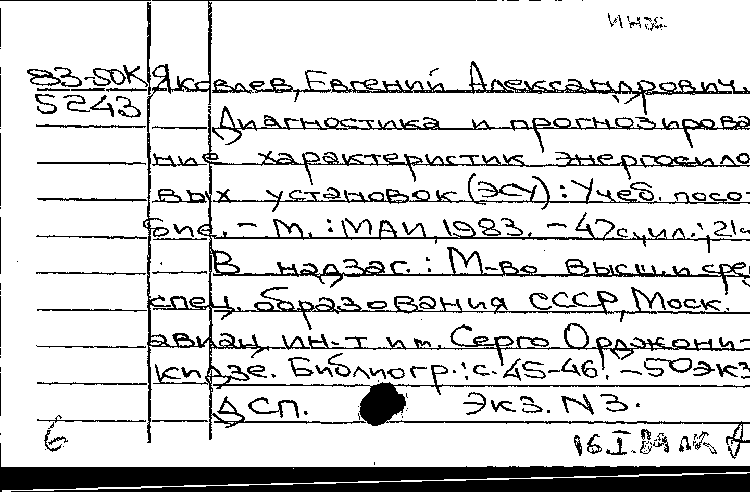 83-50К Яковлев, Евгений Александрович.
5243 Диагностика и прогнозирова
ние характеристик энергосило
вых установок (ЭСУ) : Учеб. посо-
бие. - М. : МАИ, 1983. - 47с., ил.; 21
В надзаг. : М-во высш. и сред
спец. образования СССР, Моск.
авиац. ин-т им. Серго Орджони-
кидзе. Библиогр.: с. 45-46. - 50 экз
ДСП. Экз. N3.
6 16.I.84